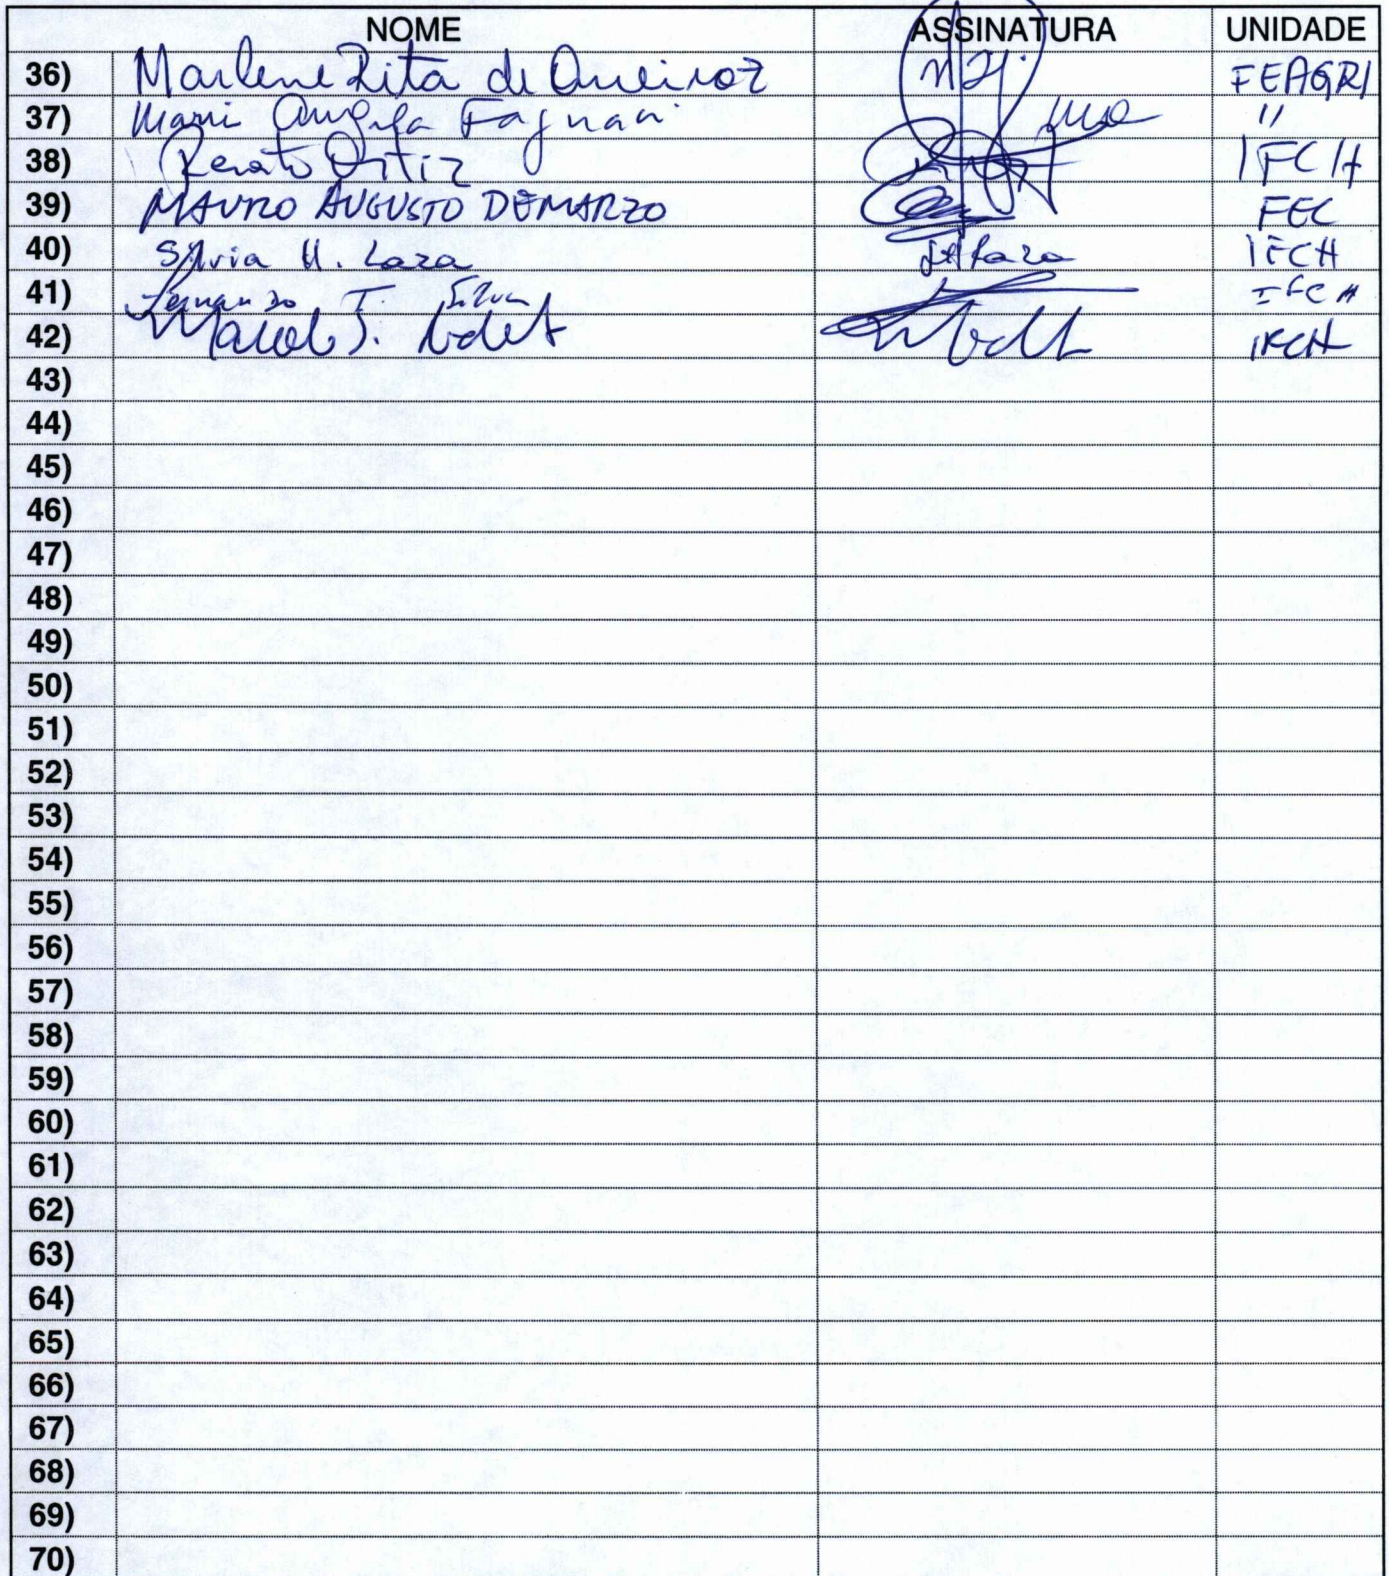 NOME ASSINATURA UNIDADE
36) Marlene Rita de Queiroz FEAGRI
37) Mari Angela Fagnani "
38) Renato Ortiz IFCH
39) MAURO AUGUSTO DEMARZO FEC
40) Silvia H. Lara SHLara IFCH
41) Fernando T. Silva IFCH
42) IFCH
43)
44)
45)
46)
47)
48)
49)
50)
51)
52)
53)
54)
55)
56)
57)
58)
59)
60)
61)
62)
63)
64)
65)
66)
67)
68)
69)
70)